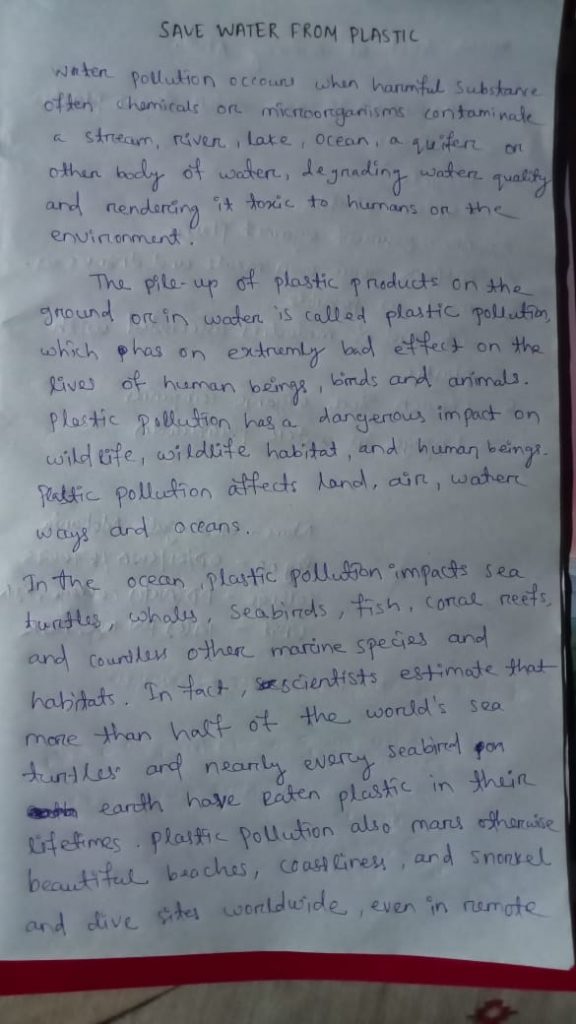 SAVE WATER FROM PLASTIC
Water pollution occours when harmful substance
often chemicals or microorganisms contaminate
a stream, river, lake, ocean, a quifer or
other body of water, degrading water quality
and rendering it toxic to humans or the
environment.
The pile-up of plastic products on the
ground or in water is called plastic pollution,
which has on extrumly bad effect on the
lives of human beings, birds and animals.
Plastic pollution has a dangerous impact on
wild life, wildlife habitat, and human beings.
Plastic pollution affects land, air, water
ways and oceans.
In the ocean, plastic pollution impacts sea
turtles, whales, seabirds, fish, coral reefs,
and countless other marine species and
habitats. In fact, scientists estimate that
more than half of the world's sea
turtles and nearly every seabird on
earth have eaten plastic in their
lifetimes. Plastic pollution also mars otherwise
beautiful beaches, coastliness, and snorkel
and dive sites worldwide, even in remote